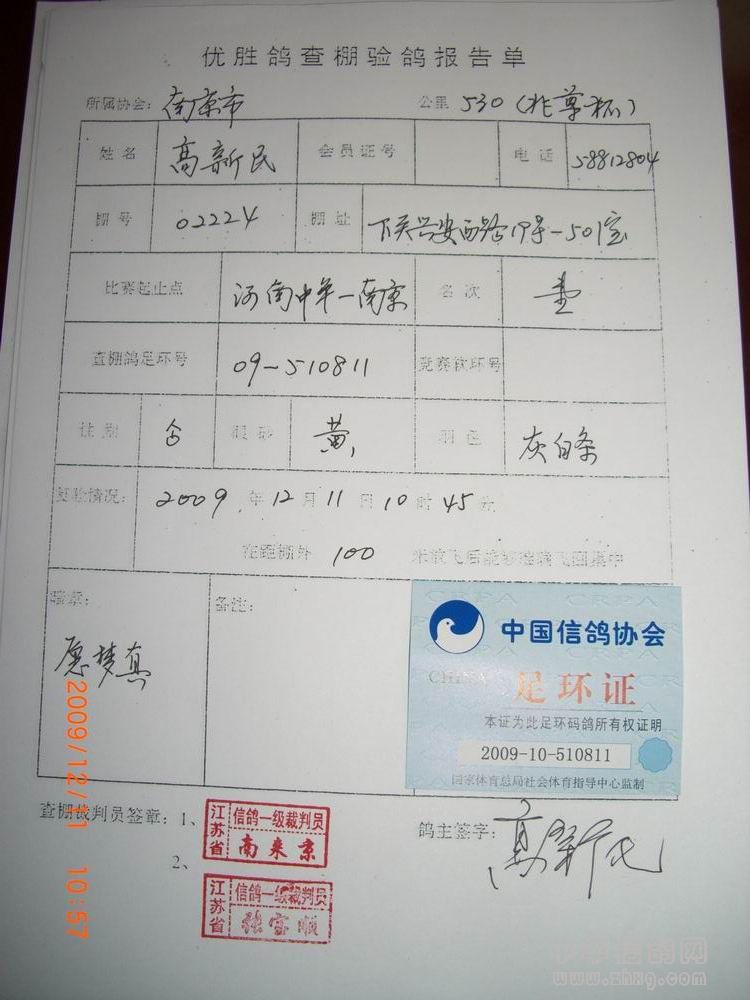 优胜鸽查棚验鸽报告单
所属协会: 南京市 公里 530
姓名 高新民 会员证号 电话 58812804
棚号 02224 棚址 下关兴安西路19号-501室
比赛起止点 河南中牟-南京 名次 壹
查棚鸽足环号 09-510811 竞赛软环号
性别 眼砂 黄 羽色 灰白条
复验情况: 2009 年 12 月 11 日 10 时 45 分
在距棚外 100 米放飞后能够 飞回巢中
备注:
愿梦真
中国信鸽协会
CHINA
足环证
本证为此足环码鸽所有权证明
2009-10-510811
国家体育总局社会体育指导中心监制
查棚裁判员签章: 1、 江苏省 信鸽一级裁判员 南来京
鸽主签字: 高新民
2、 江苏省 信鸽一级裁判员
2009/12/11 10:57
中华信鸽网
www.zhxg.com